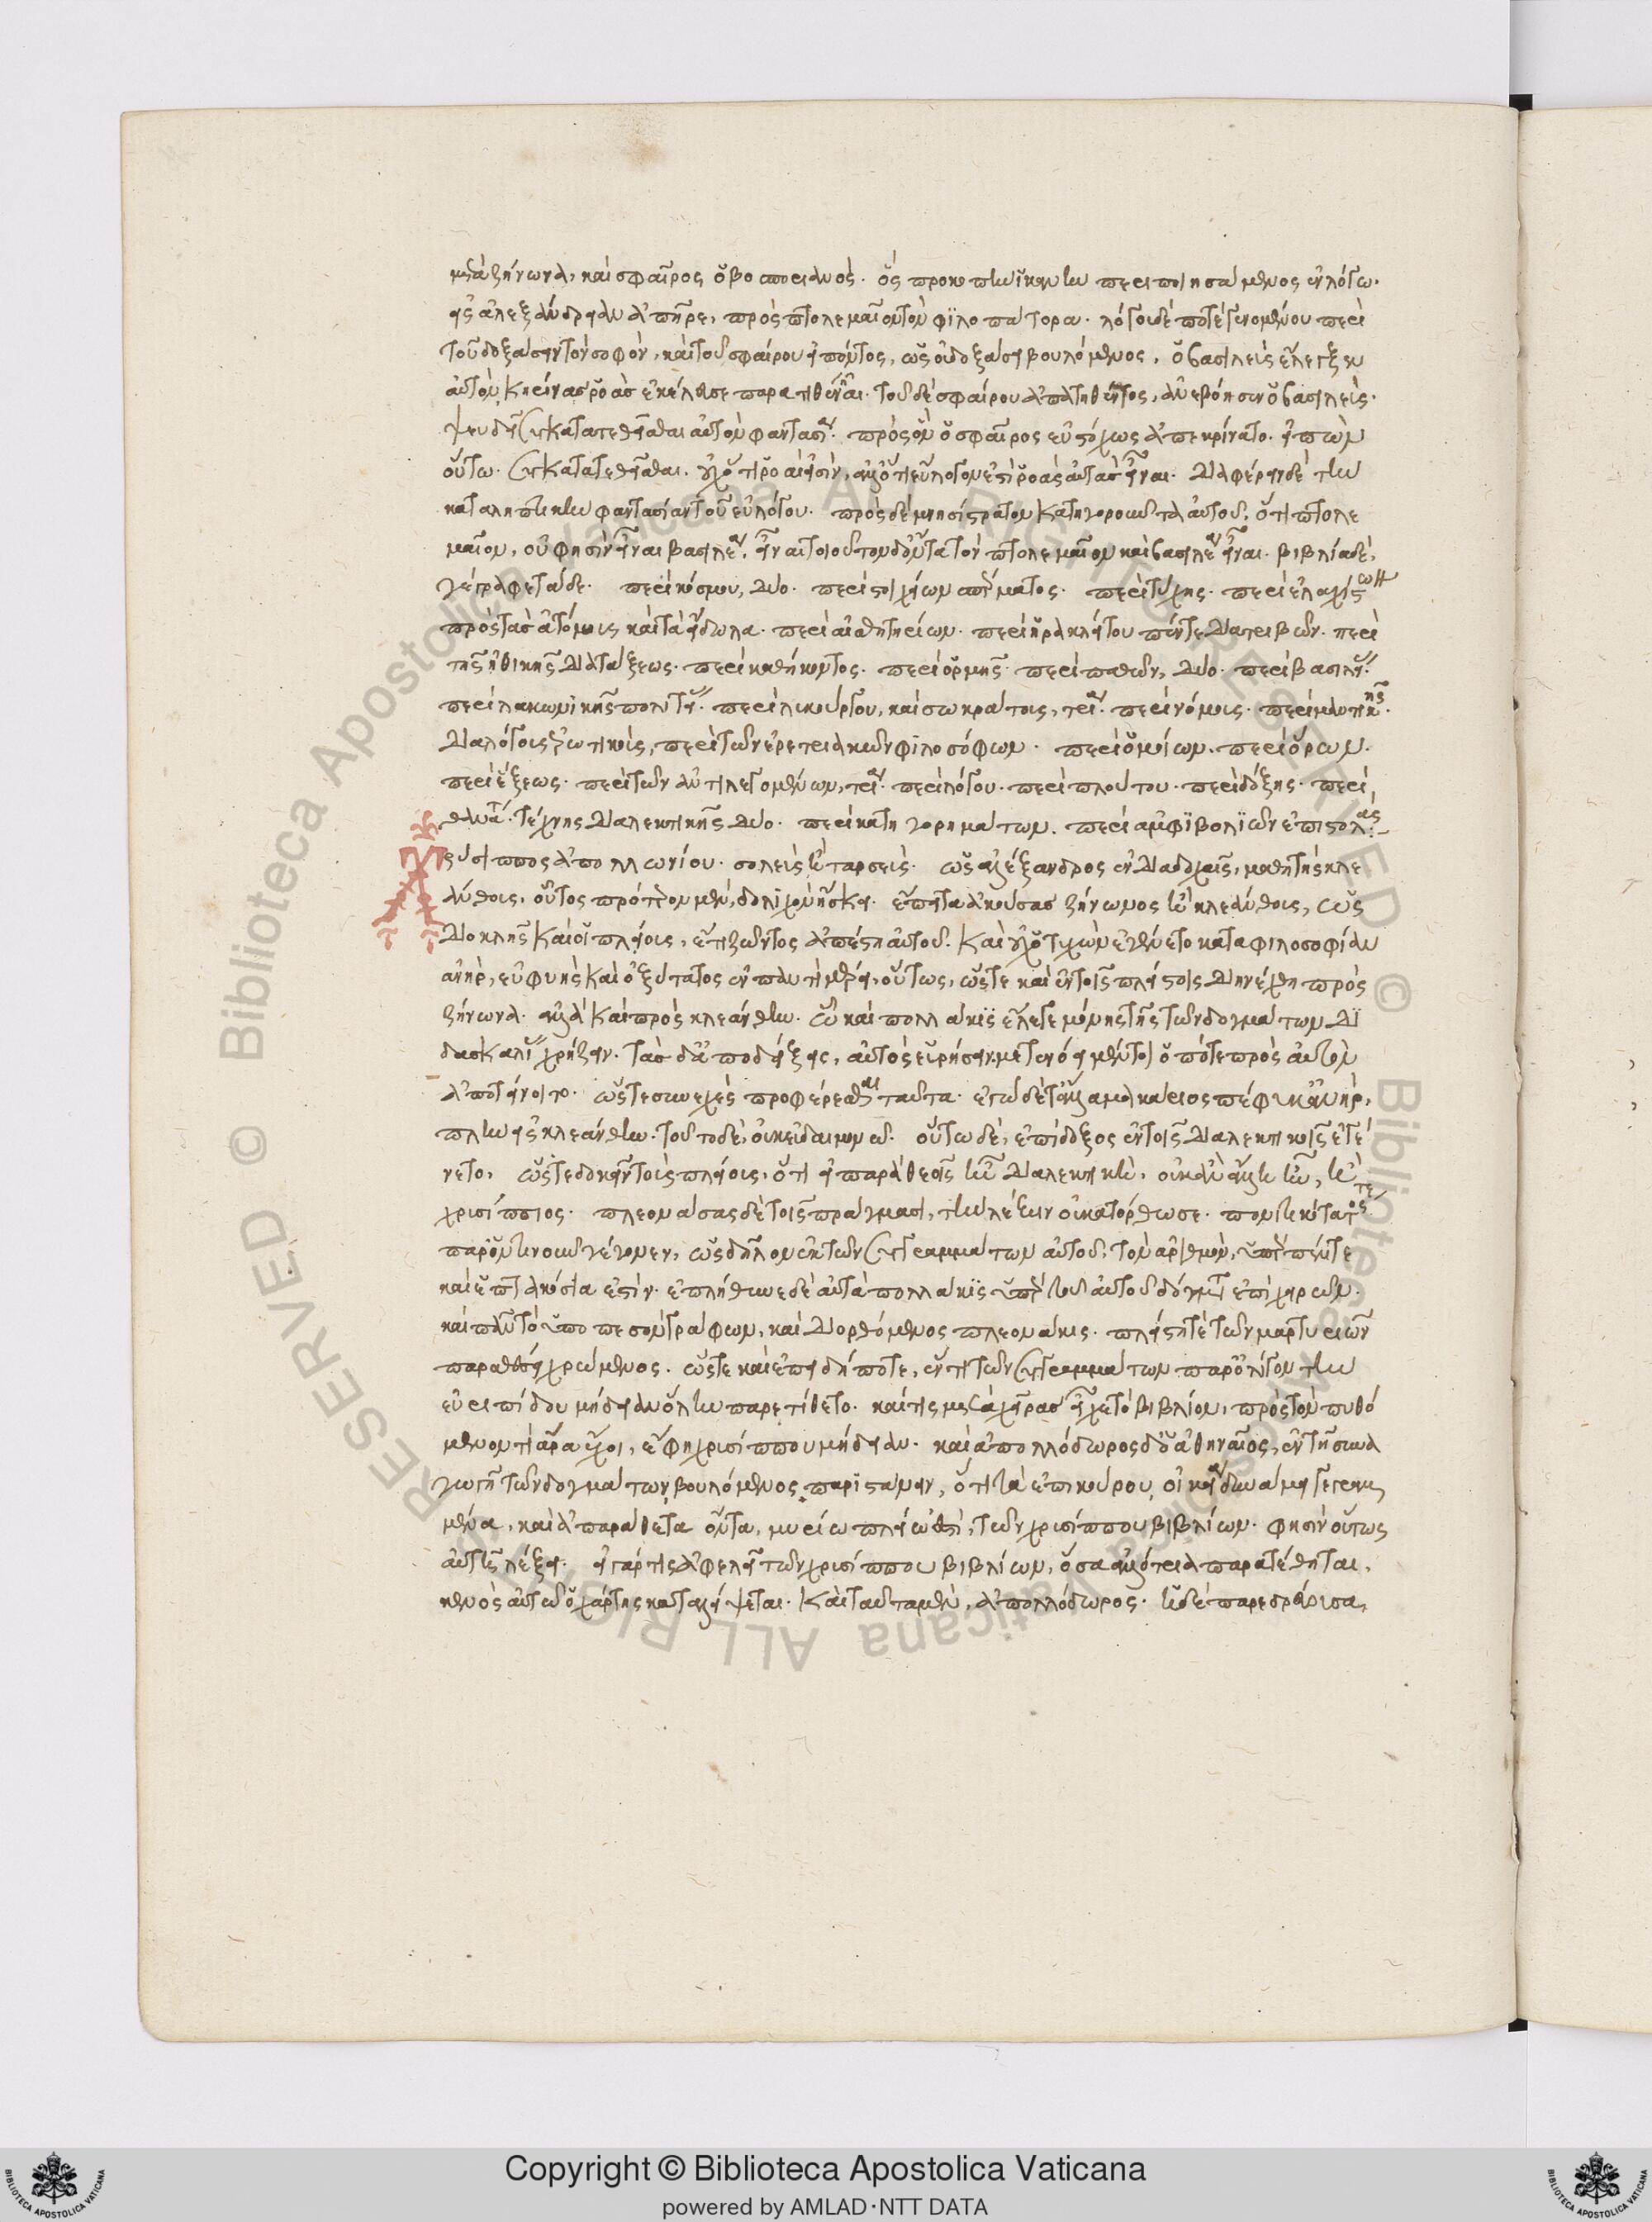 μετὰ ζήνωνα, καὶ σφαῖρος ὁ βοσποριανός. ὃς προκοπὴν ἱκανὴν περιποιησάμενος ἐν λόγω.
εἰς ἀλεξάνδρειαν ἀπῆρε, πρὸς πτολεμαῖον τὸν φιλοπάτορα. λόγου δέ ποτε γενομένου περὶ
τοῦ δοξάσειν τὸν σοφόν, καὶ τοῦ σφαίρου εἰπόντος, ὡς οὐ δοξάσει βουλόμενος. ὁ βασιλεὺς ἐλέγξαι
αὐτὸν, κηρίνας ῥόας ἐκέλευσε παρατεθῆναι. τοῦ δὲ σφαίρου ἀπατηθέντος, ἀνεβόησεν ὁ βασιλεύς.
ψευδεῖ συγκατατεθεῖσθαι αὐτὸν φαντασία. πρὸς ὃν ὁ σφαῖρος εὐστόχως ἀπεκρίνατο. εἰπὼν
οὕτω. συγκατατεθεῖσθαι. οὐχ ὅτι ῥόαι εἰσὶν, ἀλλ' ὅτι εὔλογον ἐστὶ ῥόας αὐτὰς εἶναι. διαφέρειν δὲ τὴν
καταληπτικὴν φαντασίαν τοῦ εὐλόγου. πρὸς δὲ μνησίστρατον κατηγοροῦντα αὐτοῦ, ὅτι πτολε
μαῖον, οὔ φησιν εἶναι βασιλέα. εἶναι τοιοῦτον δ' ὄντα τὸν πτολεμαῖον καὶ βασιλέα εἶναι. βιβλία δὲ,
γέγραφε τάδε. περὶ κόσμου, δύο. περὶ στοιχείων σπέρματος. περὶ τύχης. περὶ ἐλαχίστων
πρὸς τὰς ἀτόμους καὶ τὰ εἴδωλα. περὶ αἰσθητηρίων. περὶ ἡρακλείτου πέντε διατριβῶν. περὶ
τῆς ἠθικῆς διατάξεως. περὶ καθήκοντος. περὶ ὁρμῆς. περὶ παθῶν, δύο. περὶ βασιλείας.
περὶ λακωνικῆς πολιτείας. περὶ λυκούργου, καὶ σωκράτους, τρία. περὶ νόμους. περὶ μαντικῆς.
διαλόγους ἐρωτικούς, περὶ τῶν ἐρετριακῶν φιλοσόφων. περὶ ὁμοίων. περὶ ὅρων.
περὶ ἕξεως. περὶ τῶν ἀντιλεγομένων, τρία. περὶ λόγου. περὶ πλούτου. περὶ δόξης. περὶ
θανάτου. τέχνης διαλεκτικῆς δύο. περὶ κατηγορημάτων. περὶ ἀμφιβολιῶν ἐπιστολάς.
Χρύσιππος ἀπολλωνίου. σολεὺς ἢ ταρσεύς. ὡς ἀλέξανδρος ἐν διαδοχαῖς, μαθητὴς κλε
άνθους, οὗτος πρότερον μὲν, δόλιχον ἤσκει. ἔπειτα ἀκούσας ζήνωνος ἢ κλεάνθους, ὡς
διοκλῆς καὶ οἱ πλείους, ἔτι ζῶντος ἀπέστη αὐτοῦ. καὶ οὐχ ὁ τυχὼν ἐγένετο κατὰ φιλοσοφίαν
ἀνὴρ, εὐφυὴς καὶ ὀξύτατος ἐν παντὶ μέρει, οὕτως, ὥστε καὶ ἐν τοῖς πλείστοις διηνέχθη πρὸς
ζήνωνα. ἀλλὰ καὶ πρὸς κλεάνθην. ᾧ καὶ πολλάκις ἔλεγε μόνης τῆς τῶν δογμάτων δι
δασκαλίας χρήζειν. τὰς δ' ἀποδείξεις, αὐτὸς εὑρήσειν. μετενόει μέντοι ὁπότε πρὸς αὐτὸν
ἀποτείνοιτο. ὥστε συνεχὲς προφέρεσθαι ταῦτα. ἐγὼ δὲ τἄλλα μακάριος πέφυκ' ἀνὴρ,
πλὴν εἰς κλεάνθην. τοῦτο δὲ, οὐκ εὐδαιμονῶ. οὕτω δὲ, ἐπίδοξος ἐν τοῖς διαλεκτικοῖς ἐγέ
νετο, ὥστε δοκεῖν τοῖς πλείοις, ὅτι εἰ παρὰ θεοῖς ἦν διαλεκτική, οὐκ ἂν ἄλλη ἦν, ἢ
χρυσίππειος. πλεονάσας δὲ τοῖς πράγμασι, τὴν λέξιν οὐ κατόρθωσε. πονικώτατός τε
παρ' ὁντινοῦν γέγονεν, ὡς δῆλον ἐκ τῶν συγγραμμάτων αὐτοῦ, τὸν ἀριθμὸν, ὑπὲρ πέντε
καὶ ἑπτακόσια ἐστίν. ἐπλήθυνε δὲ αὐτὰ πολλάκις ὑπὲρ τοῦ αὐτοῦ δόγματος ἐπιχειρῶν.
καὶ πᾶν τὸ ὑποπεσὸν γράφων, καὶ διορθόμενος πλεονάκις. πλείστη τε τῶν μαρτυριῶν
παραθέσει χρώμενος. ὥστε καὶ ἐπειδήποτε, ἔν τι τῶν συγγραμμάτων παρ' ὀλίγον τὴν
εὐριπίδου μήδειαν ὅλην παρετίθετο. καί τις μετὰ χεῖρας εἶχε τὸ βιβλίον, πρὸς τὸν πυθό
μενον τί ἄρα ἔχοι, ἔφη χρυσίππου μήδειαν. καὶ ἀπολλόδωρος δ' ὁ ἀθηναῖος, ἐν τῆ συνα
γωγῆ τῶν δογμάτων, βουλόμενος παριστάνειν, ὅτι τὰ ἐπικούρου, οἰκεία δυνάμει γεγραμ
μένα, καὶ ἀπαράθετα ὄντα, μυρίω πλείω ἐστὶ, τῶν χρυσίππου βιβλίων. φησὶν οὕτως
αὐτῆ λέξει. εἰ γάρ τις ἀφέλοι τῶν χρυσίππου βιβλίων, ὅσα ἀλλότρια παρατέθηται,
κενὸς αὐτῶ ὁ χάρτης καταλείψεται. καὶ ταῦτα μὲν, ἀπολλόδωρος. ἡ δὲ παρεδρεύουσα,
Copyright © Biblioteca Apostolica Vaticana
powered by AMLAD·NTT DATA